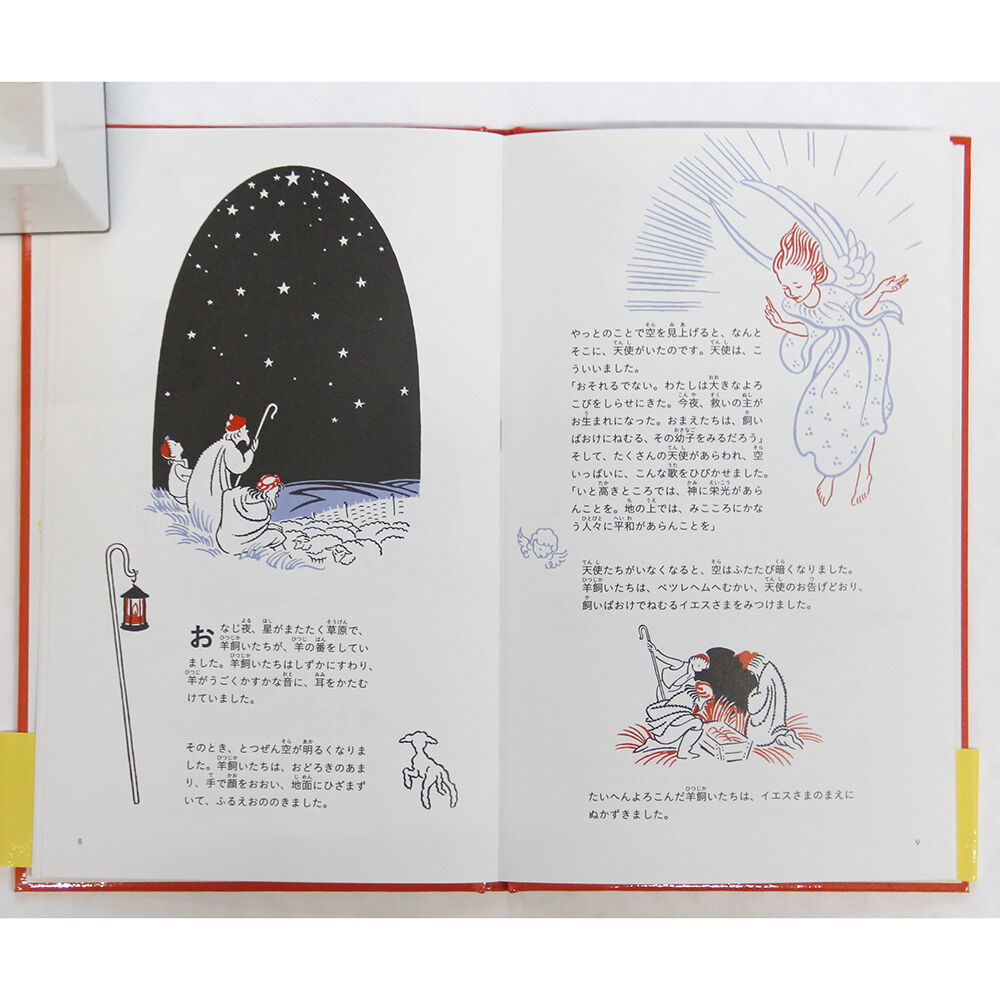 おなじ夜、星がまたたく草原で、
羊飼いたちが、羊の番をしてい
ました。羊飼いたちはしずかにすわり、
羊がうごくかすかな音に、耳をかたむ
けていました。
そのとき、とつぜん空が明るくなりま
した。羊飼いたちは、おどろきのあま
り、手で顔をおおい、地面にひざまず
いて、ふるえおののきました。
8
やっとのことで空を見上げると、なんと
そこに、天使がいたのです。天使は、こ
ういいました。
「おそれるでない。わたしは大きなよろ
こびをしらせにきた。今夜、救いの主が
お生まれになった。おまえたちは、飼い
ばおけにねむる、その幼子をみるだろう」
そして、たくさんの天使があらわれ、空
いっぱいに、こんな歌をひびかせました。
「いと高きところでは、神に栄光があら
んことを。地の上では、みこころにかな
う人々に平和があらんことを」
天使たちがいなくなると、空はふたたび暗くなりました。
羊飼いたちは、ベツレヘムへむかい、天使のお告げどおり、
飼いばおけでねむるイエスさまをみつけました。
たいへんよろこんだ羊飼いたちは、イエスさまのまえに
ぬかずきました。
9